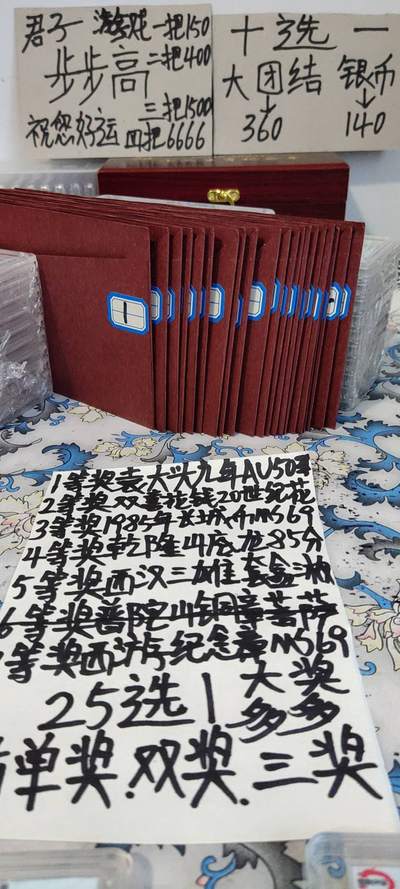 君子 游戏 一把150
步步高 二把400
三把1500
祝您好运 四把6666
十选一
大团结 银币
360 140
1
1等奖袁大头九年AU50
2等奖双喜花钱20世纪花
3等奖1985年长城币MS69
4等奖乾隆山底龙85分
5等奖西汉三雄套盒三枚
6等奖普陀山铜章菩萨
等奖西游纪念章MS69
25选1 大奖多多
单奖.双奖.三奖